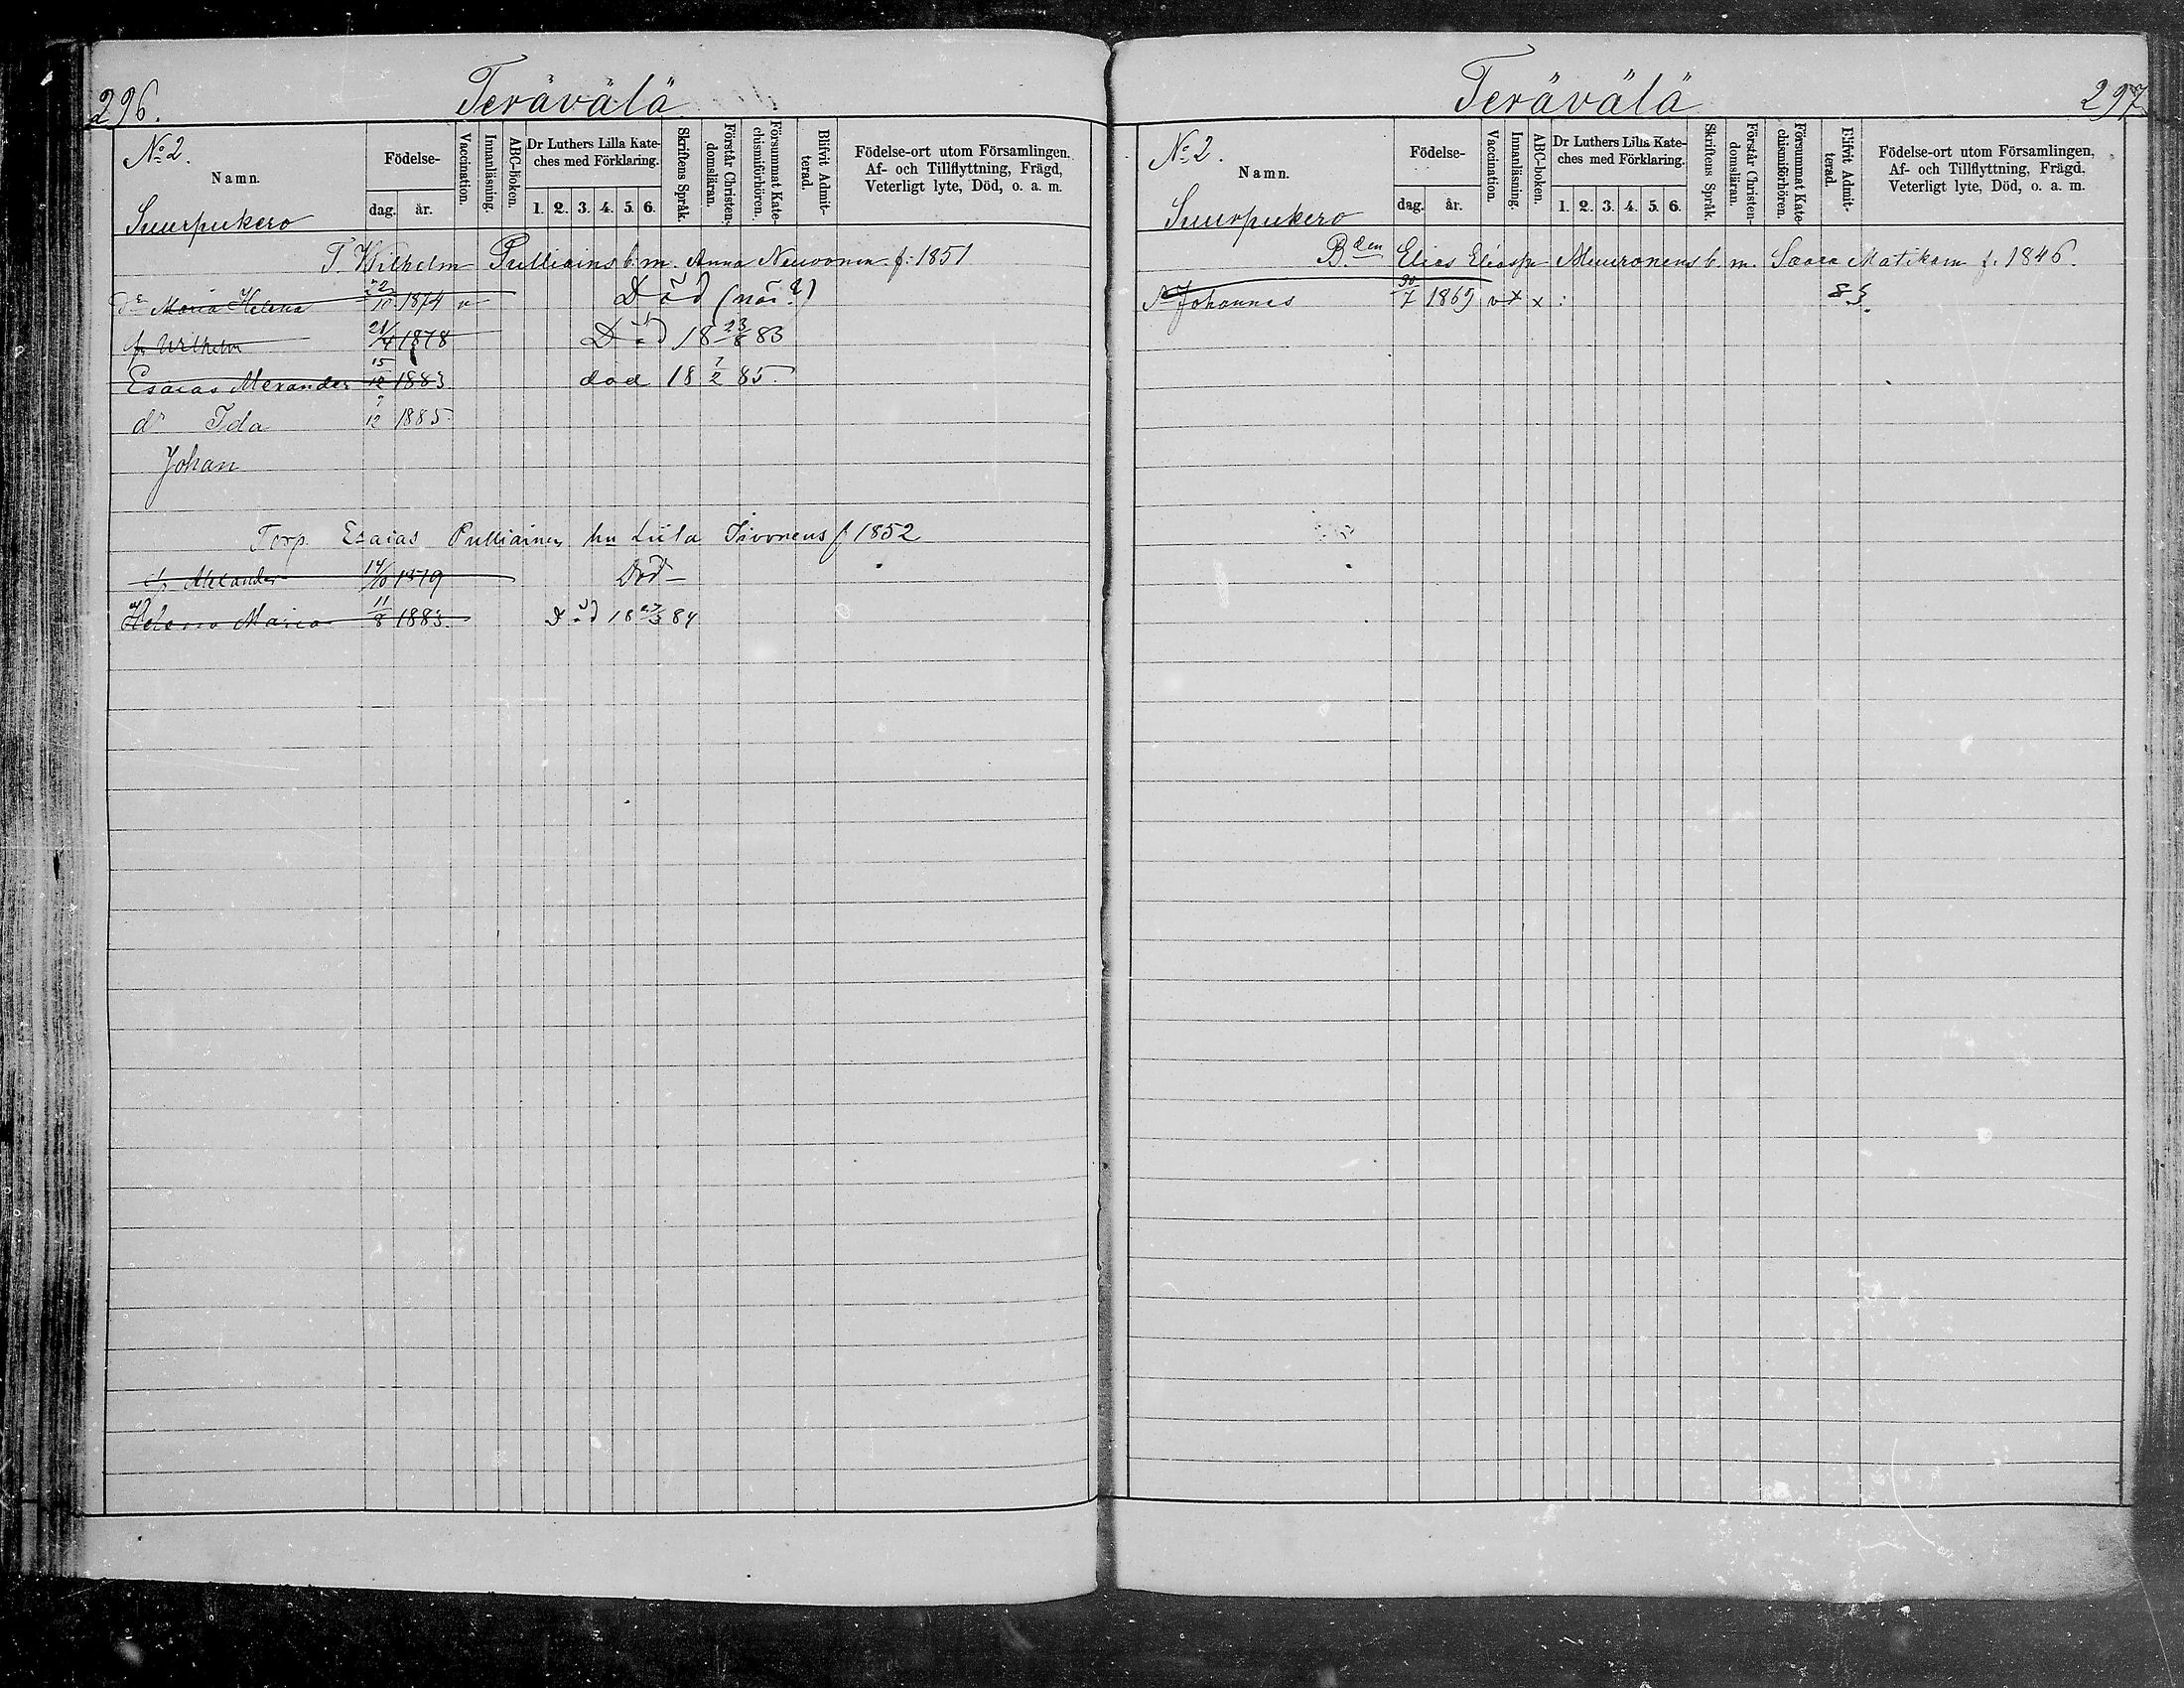 296.
Terävälä
No 2.
Namn.
Suurpukero
Födelse-
dag. år.
Vaccination.
Innanläsning.
ABC-boken.
Dr Luthers Lilla Kate-
ches med Förklaring.
1. 2. 3. 4. 5. 6.
Skriftens Språk.
Förstår Christen-
domsläran.
Försummat Kate-
chismiförhören.
Blifvit Admit-
terad.
Födelse-ort utom Församlingen.
Af- och Tillflyttning, Frägd,
Veterligt lyte, Död, o. a. m.
T. Wilhelm Pulliains b. m. Anna Neuvonen f. 1851
dr Maria Helena 22/10 1874 v Död (när?)
Wilhelm 21/4 1878 Död 18 23/8 83
Esaias Alexander 15/12 1883 död 18 7/2 85.
dr Ida 7/12 1885.
Johan
Torp. Esaias Pulliainen hu Liisa f 1852
Alexander 14/10 1879 Död
Helena Maria 11/8 1883. Död 18 84
297
Terävälä
No 2.
Namn.
Suurpukero
Födelse-
dag. år.
Vaccination.
Innanläsning.
ABC-boken.
Dr Luthers Lilla Kate-
ches med Förklaring.
1. 2. 3. 4. 5. 6.
Skriftens Språk.
Förstår Christen-
domsläran.
Försummat Kate-
chismiförhören.
Blifvit Admit-
terad.
Födelse-ort utom Församlingen,
Af- och Tillflyttning, Frägd,
Veterligt lyte, Död, o. a. m.
B.den Elias Eliasson Muuronens b. m. Saara Matikain f. 1846.
Johannes 30/7 1869 v x x :